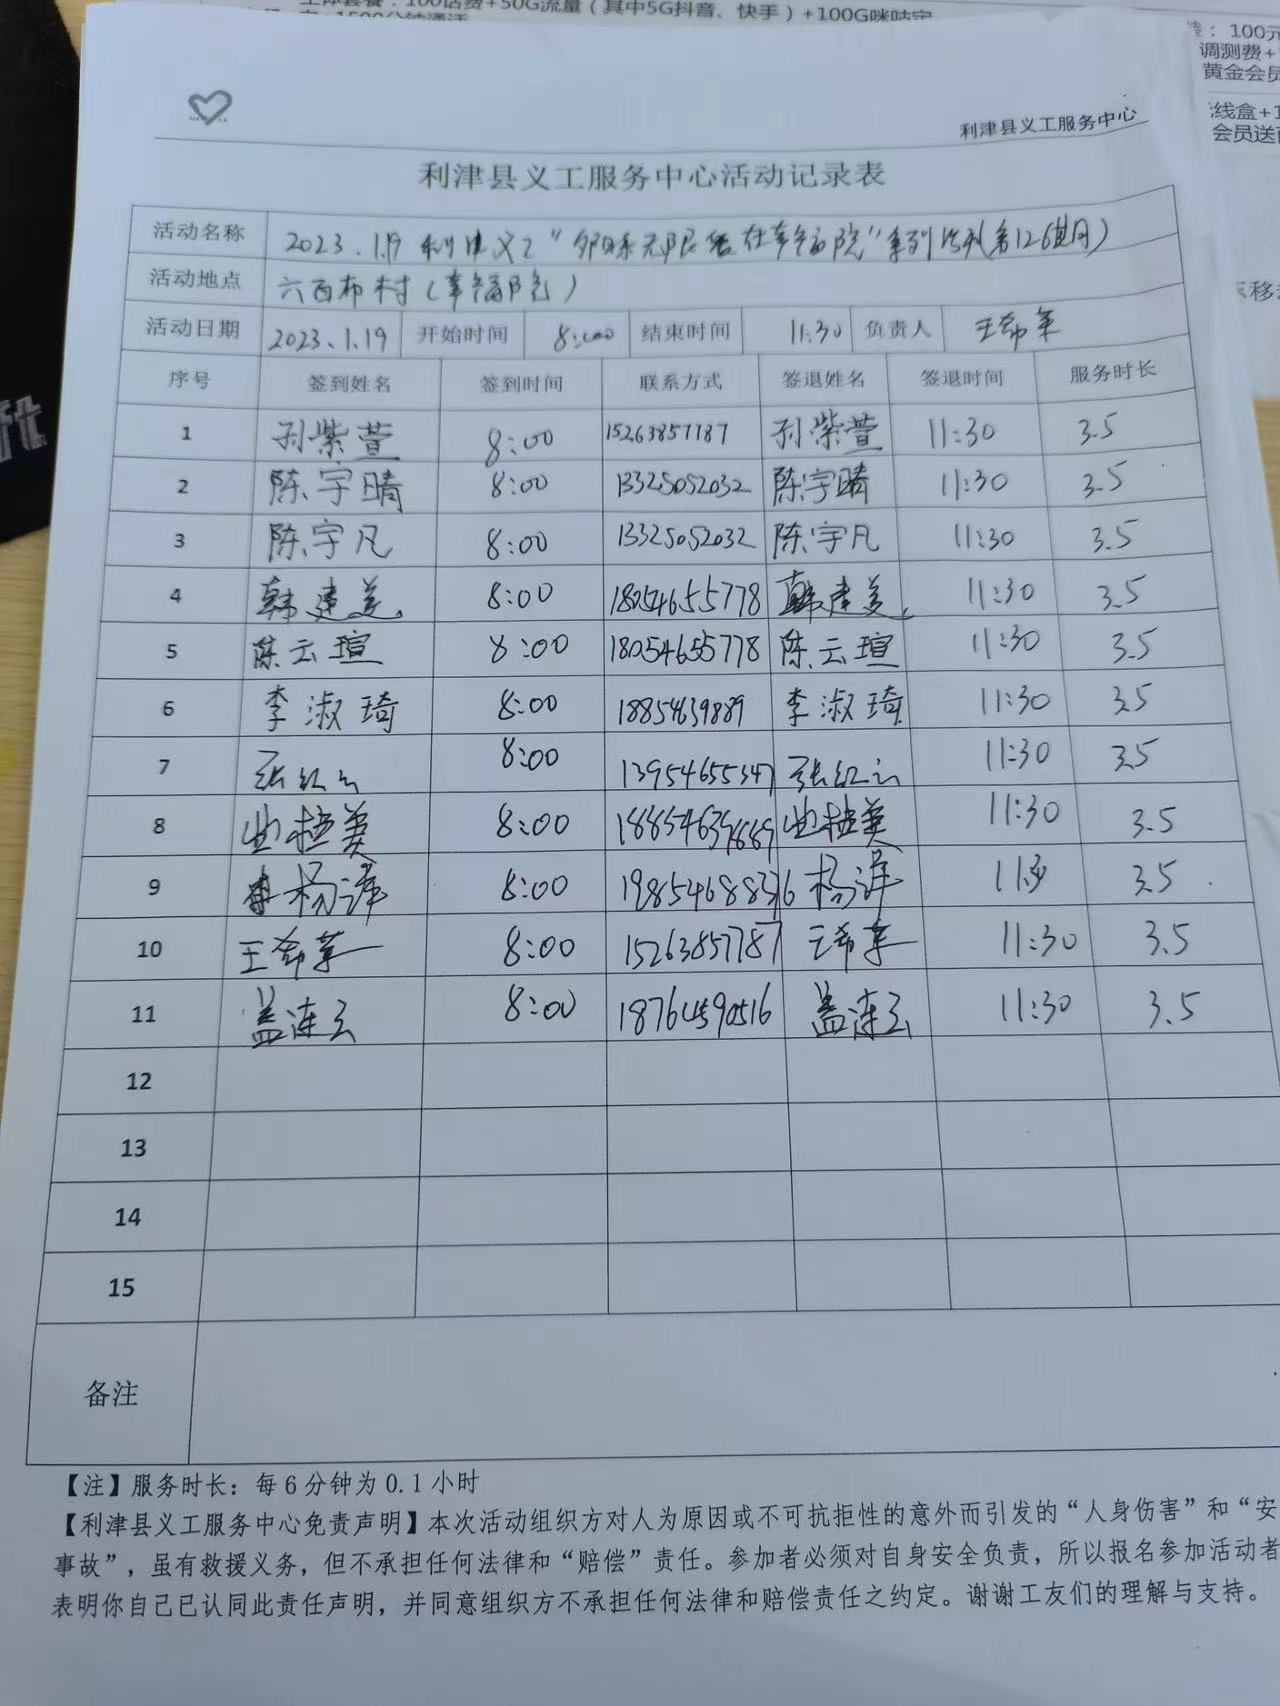 主体套餐：100话费+50G流量（其中5G抖音、快手）+100G咪咕定
100元
调测费+
黄金会员
线盒+1
会员送
利津县义工服务中心
利津县义工服务中心活动记录表
活动名称 2023.1.19 利津义工“邻里守望无限 在幸福院”系列活动(第126期)
活动地点 六百布村(幸福院)
活动日期 2023.1.19 开始时间 8:00 结束时间 11:30 负责人 王希军
序号 签到姓名 签到时间 联系方式 签退姓名 签退时间 服务时长
1 孙紫萱 8:00 15263857187 孙紫萱 11:30 3.5
2 陈宇晴 8:00 13325052032 陈宇晴 11:30 3.5
3 陈宇凡 8:00 13325052032 陈宇凡 11:30 3.5
4 韩建美 8:00 18054655778 韩建美 11:30 3.5
5 陈云瑄 8:00 18054655778 陈云瑄 11:30 3.5
6 李淑琦 8:00 18854639889 李淑琦 11:30 3.5
7 张红云 8:00 13954655347 张红云 11:30 3.5
8 8:00 11:30 3.5
9 杨洋 8:00 杨洋 3.5
10 王希军 8:00 15263857787 王希军 11:30 3.5
11 盖连玉 8:00 18764590516 盖连玉 11:30 3.5
12
13
14
15
备注
【注】服务时长：每6分钟为0.1小时
【利津县义工服务中心免责声明】本次活动组织方对人为原因或不可抗拒性的意外而引发的“人身伤害”和“安
事故”，虽有救援义务，但不承担任何法律和“赔偿”责任。参加者必须对自身安全负责，所以报名参加活动者
表明你自己已认同此责任声明，并同意组织方不承担任何法律和赔偿责任之约定。谢谢工友们的理解与支持。